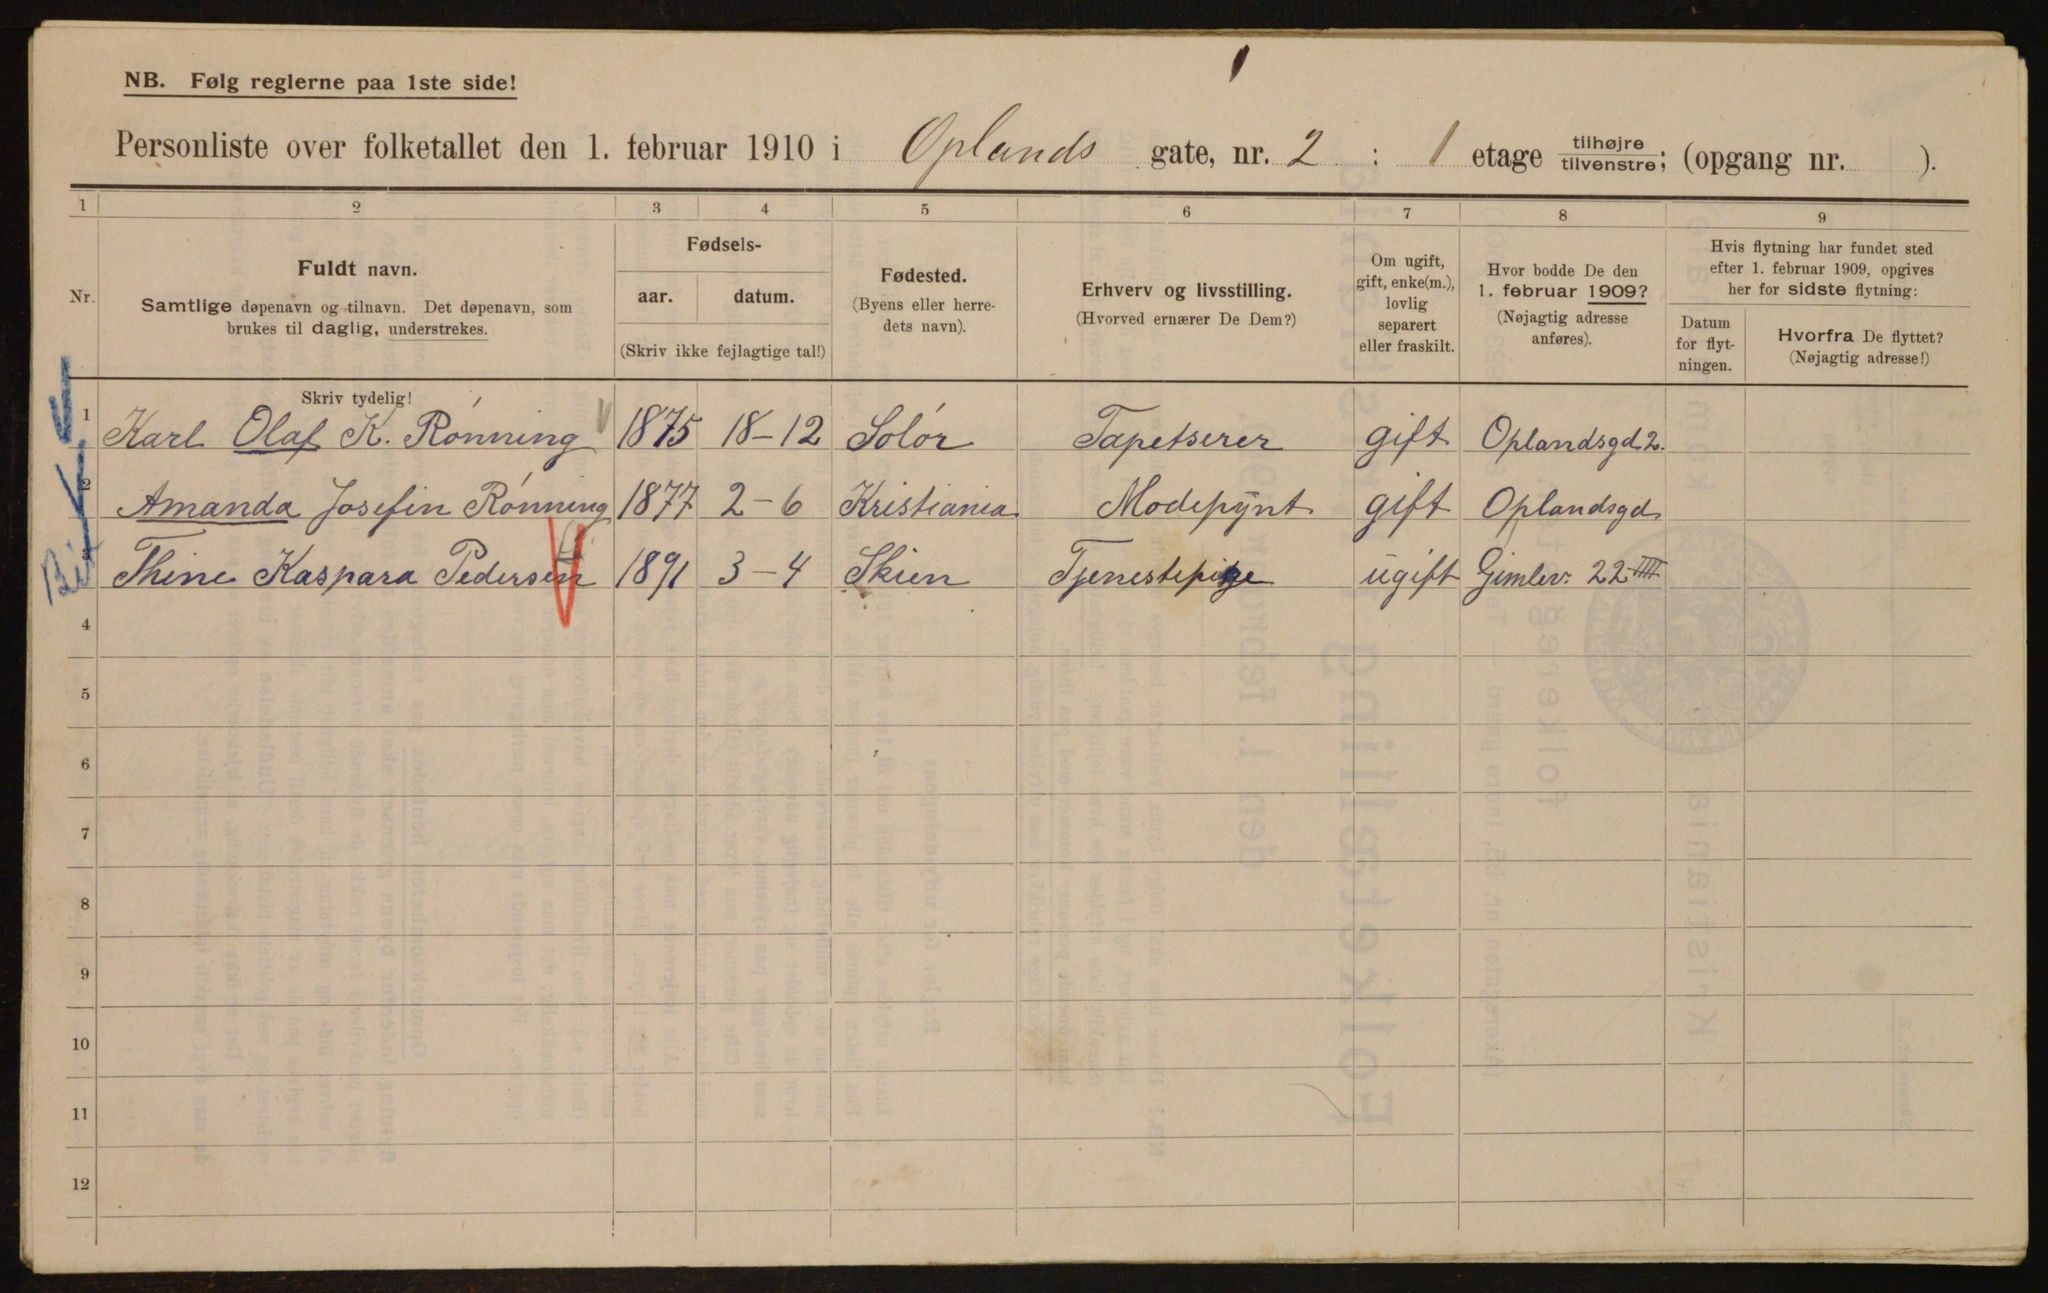 NB. Følg reglerne paa 1ste side!
Personliste over folketallet den 1. februar 1910 i Oplands gate, nr. 2 : 1 etage tilhøjre tilvenstre; (opgang nr. ).
1 2 3 4 5 6 7 8 9
Nr.
Fuldt navn.
Samtlige døpenavn og tilnavn. Det døpenavn, som
brukes til daglig, understrekes.
Skriv tydelig!
Fødsels-
aar. datum.
(Skriv ikke fejlagtige tal!)
Fødested.
(Byens eller herre-
dets navn).
Erhverv og livsstilling.
(Hvorved ernærer De Dem?)
Om ugift,
gift, enke(m.),
lovlig
separert
eller fraskilt.
Hvor bodde De den
1. februar 1909?
(Nøjagtig adresse
anføres).
Hvis flytning har fundet sted
efter 1. februar 1909, opgives
her for sidste flytning:
Datum
for flyt-
ningen.
Hvorfra De flyttet?
(Nøjagtig adresse!)
1 Karl Olaf K. Rónning 1875 18-12 Solór Tapetserer gift Oplandsgd 2.
2 Amanda Josefin Rónning 1877 2-6 Kristiania Modepynt gift Oplandsgd
3 Thine Kaspara Pedersen 1891 3-4 Skien Tjenestepige ugift Gimlev. 22 IIII
4
5
6
7
8
9
10
11
12